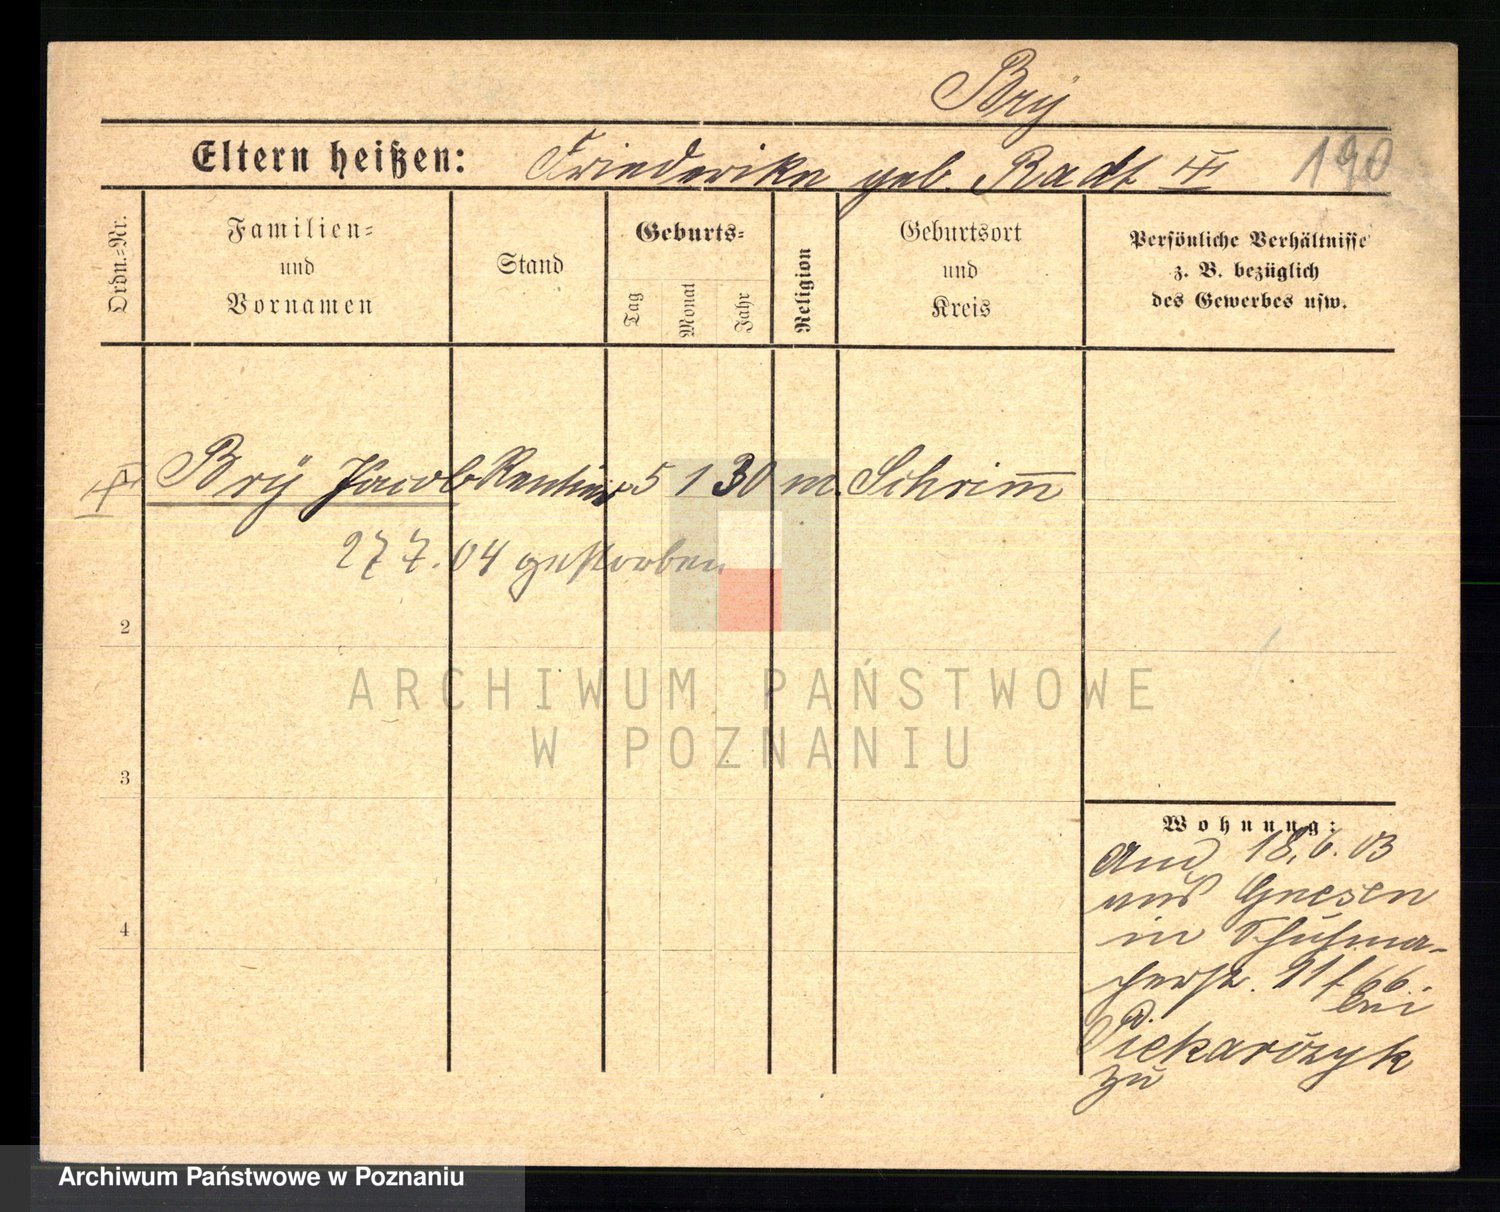 Bry
Eltern heißen: Friederike geb. Radt
190
Ordn.=Nr.
Familien=
und
Vornamen
Stand
Geburts=
Tag
Monat
Jahr
Religion
Geburtsort
und
Kreis
Persönliche Verhältnisse
z. B. bezüglich
des Gewerbes usw.
Brÿ Jacob Rentier 5 1 30 m. Schrimm
27 7. 04 gestorben
2
3
4
Wohnung:
18. 6. 03
aus Gnesen
in Schuhma-
cherstr. 11 f 66.
bei
Piekarczyk
zu
ARCHIWUM PAŃSTWOWE
W POZNANIU
Archiwum Państwowe w Poznaniu